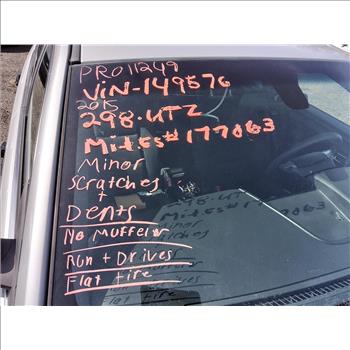 PRO11249
ViN-149576
2015
298-UTZ
Miles# 177063
Minor
Scratches
+
Dents
No Muffler
Run + Drives
Flat tire